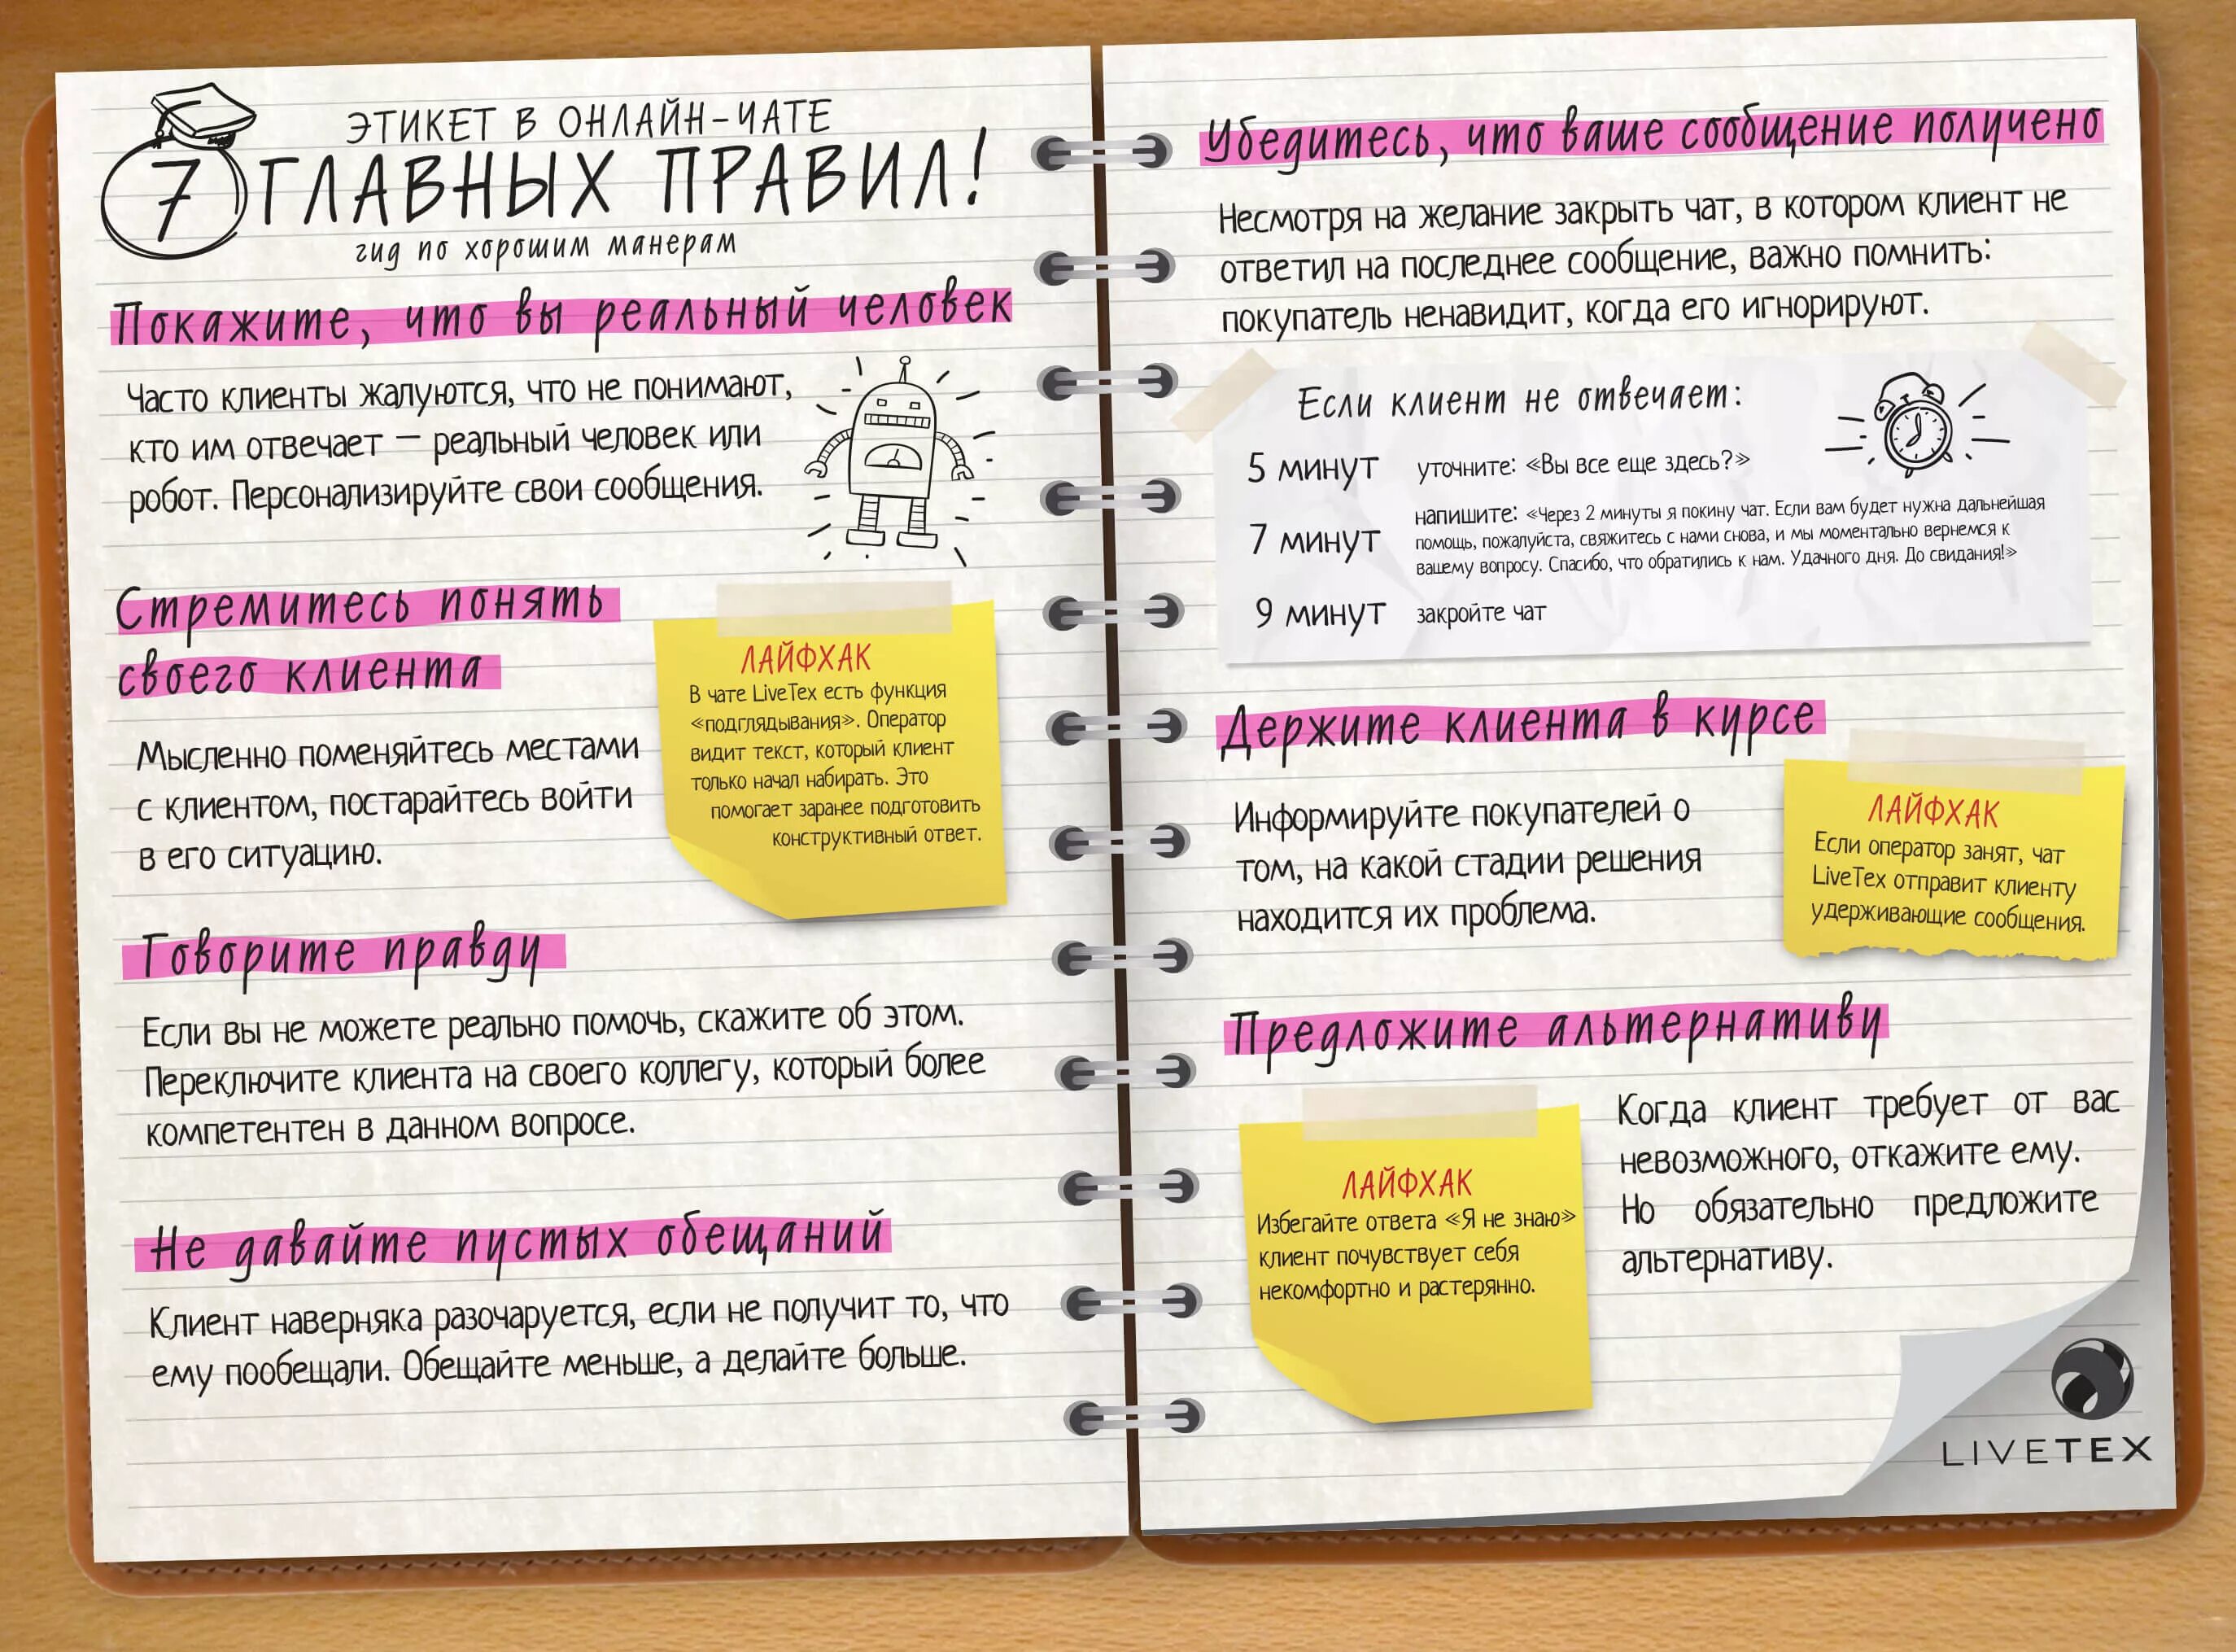 ЭТИКЕТ В ОНЛАЙН-ЧАТЕ
7 ГЛАВНЫХ ПРАВИЛ!
гид по хорошим манерам
Покажите, что вы реальный человек
Часто клиенты жалуются, что не понимают,
кто им отвечает — реальный человек или
робот. Персонализируйте свои сообщения.
Стремитесь понять
своего клиента
Мысленно поменяйтесь местами
с клиентом, постарайтесь войти
в его ситуацию.
ЛАЙФХАК
В чате LiveTex есть функция
«подглядывания». Оператор
видит текст, который клиент
только начал набирать. Это
помогает заранее подготовить
конструктивный ответ.
Говорите правду
Если вы не можете реально помочь, скажите об этом.
Переключите клиента на своего коллегу, который более
компетентен в данном вопросе.
Не давайте пустых обещаний
Клиент наверняка разочаруется, если не получит то, что
ему пообещали. Обещайте меньше, а делайте больше.
Убедитесь, что ваше сообщение получено
Несмотря на желание закрыть чат, в котором клиент не
ответил на последнее сообщение, важно помнить:
покупатель ненавидит, когда его игнорируют.
Если клиент не отвечает:
5 минут уточните: «Вы все еще здесь?»
7 минут напишите: «Через 2 минуты я покину чат. Если вам будет нужна дальнейшая
помощь, пожалуйста, свяжитесь с нами снова, и мы моментально вернемся к
вашему вопросу. Спасибо, что обратились к нам. Удачного дня. До свидания!»
9 минут закройте чат
Держите клиента в курсе
Информируйте покупателей о
том, на какой стадии решения
находится их проблема.
ЛАЙФХАК
Если оператор занят, чат
LiveTex отправит клиенту
удерживающие сообщения.
Предложите альтернативу
ЛАЙФХАК
Избегайте ответа «Я не знаю»
клиент почувствует себя
некомфортно и растерянно.
Когда клиент требует от вас
невозможного, откажите ему.
Но обязательно предложите
альтернативу.
LIVETEX